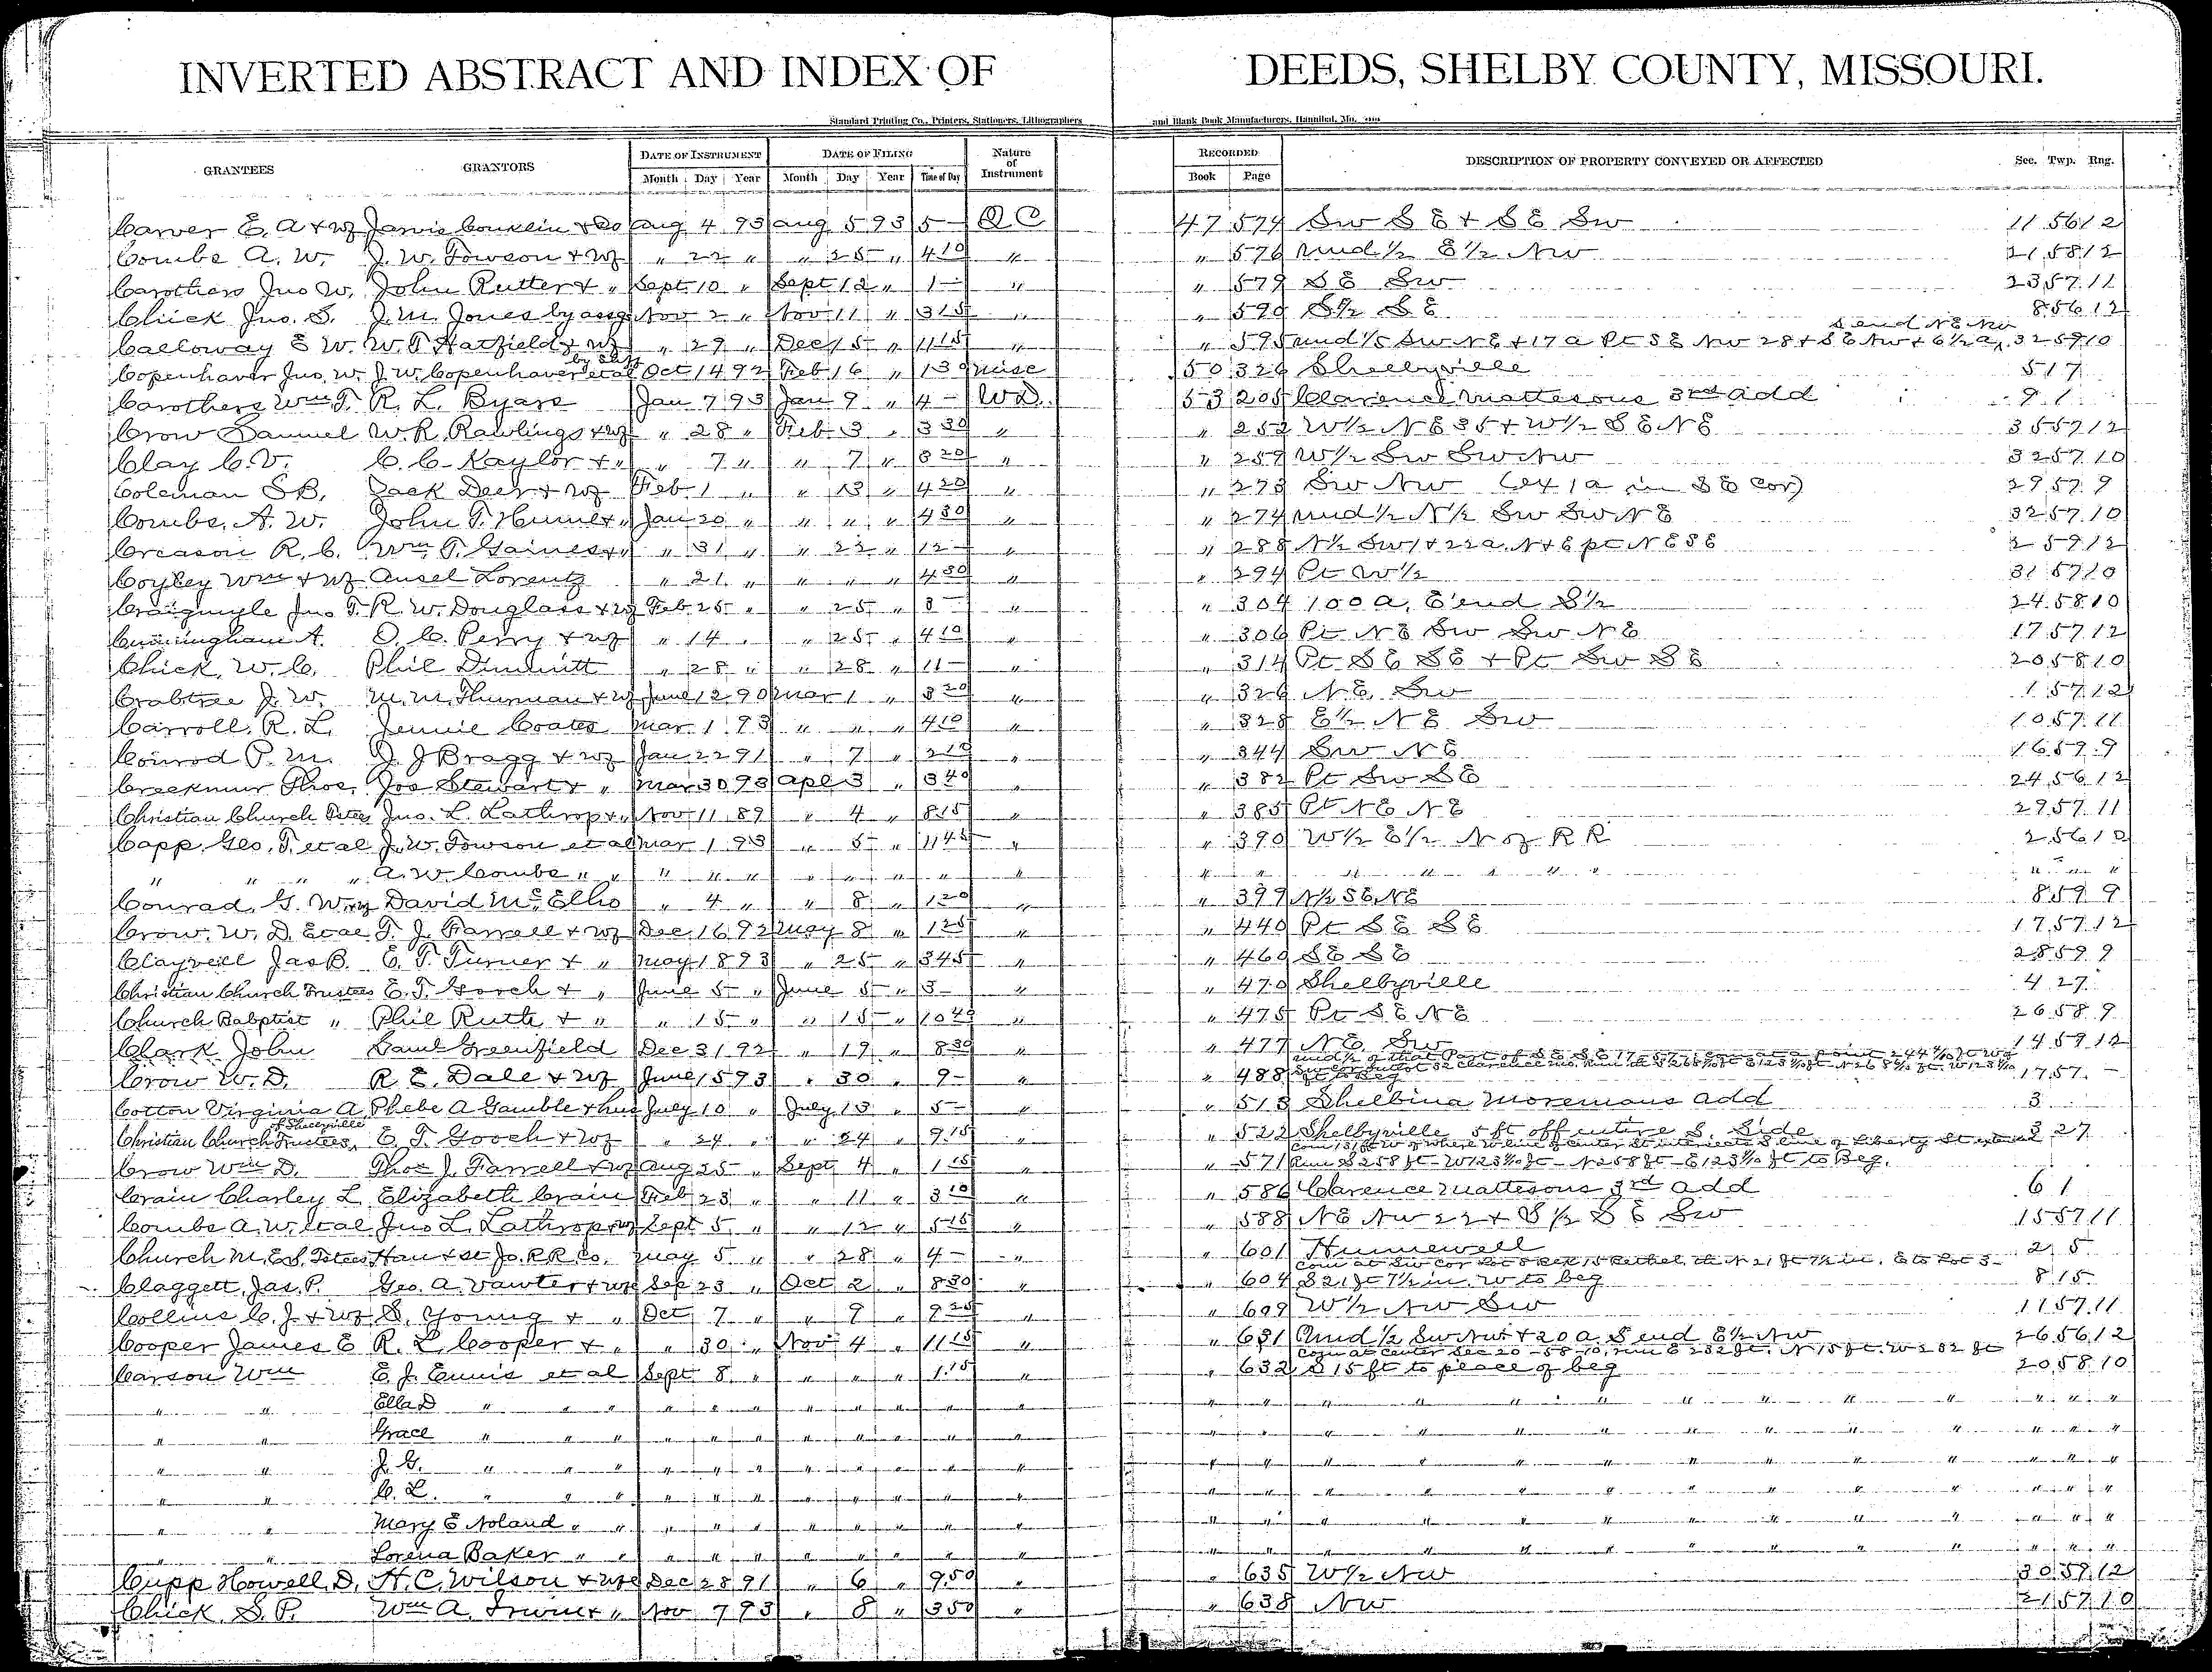 INVERTED ABSTRACT AND INDEX OF DEEDS, SHELBY COUNTY, MISSOURI.
Standard Printing Co., Printers, Stationers, Lithographers and Blank Book Manufacturers, Hannibal, Mo.
GRANTEES GRANTORS DATE OF INSTRUMENT DATE OF FILING Nature of Instrument RECORDED DESCRIPTION OF PROPERTY CONVEYED OR AFFECTED Sec. Twp. Rng.
Month Day Year Month Day Year Time of Day Book Page
Carver E. A & wf Jarvis Conklin & Co Aug 4 93 Aug 5 93 5 – Q C 47 574 Sw S E & S E Sw 11 56 12
Combs A. W. J. W. Towson & wf " 22 " " 25 " 4 10 " " 576 und 1/2 E 1/2 Nw 21 58 12
Carothers Jno W. John Rutter & " Sept 10 " Sept 12 " 1 – " " 579 S E Sw 23 57 11
Chick Jno. S. J. M. Jones by assg Nov 2 " Nov 11 " 3 15 " " 590 S 1/2 S E 8 56 12
S end N E Nw
Calloway E W. W. T Hatfield & wf " 29 " Dec 15 " 11 15 " " 595 und 1/5 Sw N E & 17 a Pt S E Nw 28 & S E Nw & 6 1/2 a, 32 59 10
Copenhaver Jno. W. J. W. Copenhaver et al Oct 14 92 Feb 16 " 1 30 misc 50 326 Shelbyville 5 17
Carothers Wm T. R. L. Byars Jan 7 93 Jan 9 " 4 – W D. 53 205 Clarence Mattesons 3rd add 9 1
Crow Samuel W. R. Rawlings & wf " 28 " Feb 3 " 3 30 " " 252 W 1/2 N E 35 & W 1/2 S E N E 35 57 12
Clay C. V. C. C. Kaylor & " " 7 " " 7 " 8 20 " " 259 W 1/2 Sw Sw Nw 32 57 10
Coleman S B. Jack Deer & wf Feb 1 " " 13 " 4 20 " " 273 Sw Nw (ex 1 a in S E Cor) 29 57 9
Combs. A. W. John T. Humes & " Jan 20 " " " " 4 30 " " 274 und 1/2 N 1/2 Sw Sw N E 32 57 10
Creason R. C. Wm T. Gaines & " " 31 " " 22 " 12 – " " 288 N 1/2 Sw 1 & 22 a. N & E pt N E S E 2 59 12
Coyley Wm & wf Ansel Lorentz " 21 " " " " 4 30 " " 294 Pt W 1/2 31 57 10
Craigmyle Jno T. R. W. Douglass & wf Feb 25 " " 25 " 3 – " " 304 100 a, E end S 1/2 24 58 10
Cunningham A. O. C. Perry & wf " 14 " " 25 " 4 10 " " 306 Pt N E Sw Sw N E 17 57 12
Chick, W. C. Phil Dimmitt " 28 " " 28 " 11 – " " 314 Pt S E S E & Pt Sw S E 20 58 10
Crabtree J. W. M. M. Thurman & wf June 12 90 Mar 1 " 3 20 " " 326 N E. Sw 1 57 12
Carroll. R. L. Jennie Coates Mar 1 93 " " " 4 10 " " 328 E 1/2 N E Sw 10 57 11
Conrod P. M. J. J Bragg & wf Jan 22 91 " 7 " 2 10 " " 344 Sw N E 16 59 9
Creekmur Thos. Jos Stewart & " Mar 30 93 Apl 3 " 3 40 " " 382 Pt Sw S E 24 56 12
Christian Church Tstees Jno. L. Lathrop & " Nov 11 89 " 4 " 8 15 " " 385 Pt N E N E 29 57 11
Capp. Geo. T. et al J. W. Towson et al Mar 1 93 " 5 " 11 45 " " 390 W 1/2 E 1/2 N of R R 2 56 12
" " " " A. W. Combs " " " " " " " " " " " " " " " " " " " "
Conrad, G. W & wf David McElho " 4 " " 8 " 1 20 " " 399 N 1/2 S E. N E 8 59 9
Crow. W. D. Et al T. J. Farrell & wf Dec 16 92 May 8 " 1 25 " " 440 Pt S E S E 17 57 12
Clayvell Jas B. E. T. Turner & " May 18 93 " 25 " 3 45 " " 460 S E S E 28 59 9
Christian Church Trustees E. T. Gooch & " June 5 " June 5 " 3 – " " 470 Shelbyville 4 27
Church Babptist " Phil Ruth & " " 15 " " 15 " 10 40 " " 475 Pt S E N E 26 58 9
Clark John Saml Greenfield Dec 31 92 " 19 " 8 30 " " 477 N E Sw 14 59 12
Crow W. D. R. E. Dale & wf June 15 93 " 30 " 9 – " " 488 17 57 –
Cotton Virginia A. Phebe A Gamble & hus July 10 " July 13 " 5 – " " 513 Shelbina Moremans add 3
of Shelbyville
Christian Church Trustees, E. T. Gooch & wf " 24 " " 24 " 9 15 " " 522 Shelbyville 5 ft off entire S. Side 3 27
Com 131 ft W of where W line of center St intersects S line of Liberty St
Crow Wm D. Thos J. Farrell & wf Aug 25 " Sept 4 " 1 15 " " 571 Run S 258 ft – W 123 4/10 ft – N 258 ft – E 123 4/10 ft to Beg.
Crain Charley L Elizabeth Crain Feb 23 " " 11 " 3 10 " " 586 Clarence Mattesons 3rd add 6 1
Combs A. W. et al Jno L. Lathrop & wf Sept 5 " " 12 " 5 15 " " 588 N E Nw 22 & S 1/2 S E Sw 15 57 11
Church M. E. S. Tstees Han & St Jo. R R Co. May 5 " " 28 " 4 – " " 601 Hunnewell 2 5
Com at Sw Cor Lot 8 Blk 15 Bethel. th N 21 ft 7 1/2 in. E to Lot 5 –
Claggett, Jas. P. Geo. A. Vawter & wf Sep 23 " Oct 2 " 8 30 " " 604 S 21 ft 7 1/2 in. W to beg 8 15
Collins C. J & wf S. Young & " Oct 7 " " 9 " 9 25 " " 609 W 1/2 Nw Sw 11 57 11
Cooper James E R. L. Cooper & " " 30 " Nov 4 " 11 15 " " 631 Und 1/2 Sw Nw & 20 a. S end E 1/2 Nw 26 56 12
Com at center Sec 20 – 58 – 10, run E 232 ft. N 15 ft. W 232 ft
Carson Wm E. J. Ennis et al Sept 8 " " " " 1 15 " " 632 S 15 ft to place of beg 20 58 10
" " Ella D " " " " " " " " " " " " " " " " " " " " " "
" " Grace " " " " " " " " " " " " " " " " " " " " " "
" " J. G. " " " " " " " " " " " " " " " " " " " " " "
" " C. L. " " " " " " " " " " " " " " " " " " " " " "
" " Mary E Noland " " " " " " " " " " " " " " " " " " " " "
" " Lorena Baker " " " " " " " " " " " " " " " " " " " " "
Cupp Howell. D. H. C. Wilson & wf Dec 28 91 " 6 " 9 50 " " 635 W 1/2 Nw 30 59 12
Chick S. P. Wm A. Irwin & " Nov 7 93 " 8 " 3 50 " " 638 Nw 21 57 10